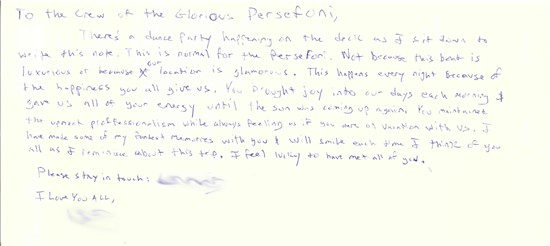 To the Crew of the Glorious Persefoni,
There's a dance party happening on the deck as I sit down to
write this note. This is normal for the Persefoni. Not because this boat is
luxurious or because our location is glamorous. This happens every night because of
the happiness you all give us. You brought joy into our days each morning &
gave us all of your energy until the sun was coming up again. You maintained
the upmost proffessionalism while always feeling as if you were on vacation with us. I
have made some of my fondest memories with you & will smile each time I think of you
all as I reminisce about this trip. I feel lucky to have met all of you.
Please stay in touch:
I Love You ALL,